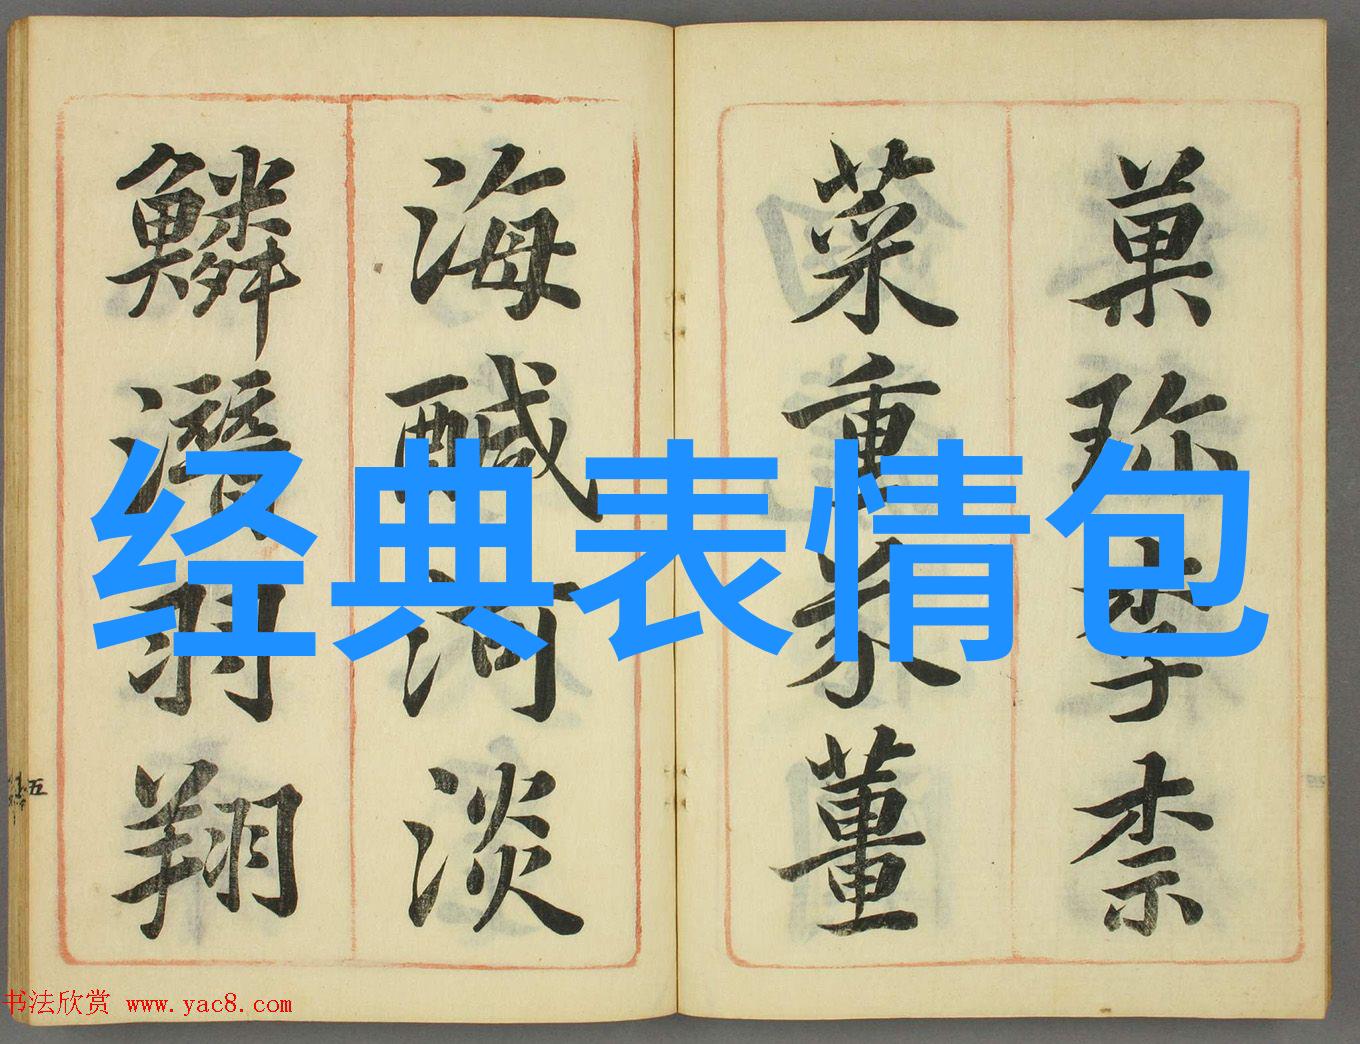 菓珎李柰
菜重芥薑
海醎河淡
鱗潛羽翔
五
经典表情包
书法欣赏 www.yac8.com